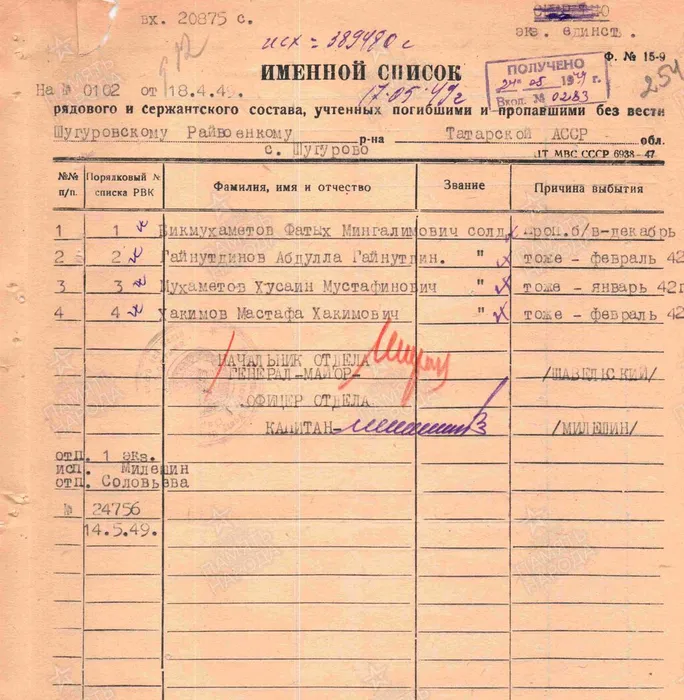 вх. 20875 с.
экз. единств.
исх = 389480 с
Ф. № 15-9
ИМЕННОЙ СПИСОК
ПОЛУЧЕНО
05 19 г.
Вход. № 0283
254
На № 0102 от 18.4.49.
17.05.49г
рядового и сержантского состава, учтенных погибшими и пропавшими без вести
Шугуровскому Райвоенкому р-на Татарской АССР обл.
с. Шугурово
ЦТ МВС СССР 6938-47
№№ п/п. Порядковый № списка РВК Фамилия, имя и отчество Звание Причина выбытия
1 1 Бикмухаметов Фатых Мингалимович солд. проп.б/в-декабрь
2 2 Гайнутдинов Абдулла Гайнутдин. " тоже - февраль 42
3 3 Мухаметов Хусаин Мустафинович " тоже - январь 42г
4 4 Хакимов Мастафа Хакимович " тоже - февраль 42
НАЧАЛЬНИК ОТДЕЛА
ГЕНЕРАЛ-МАЙОР- /ШАВЕЛЬСКИЙ/
ОФИЦЕР ОТДЕЛА
КАПИТАН- /МИЛЕШИН/
отп. 1 экз.
исп. Милешин
отп. Соловьева
№ 24756
14.5.49.